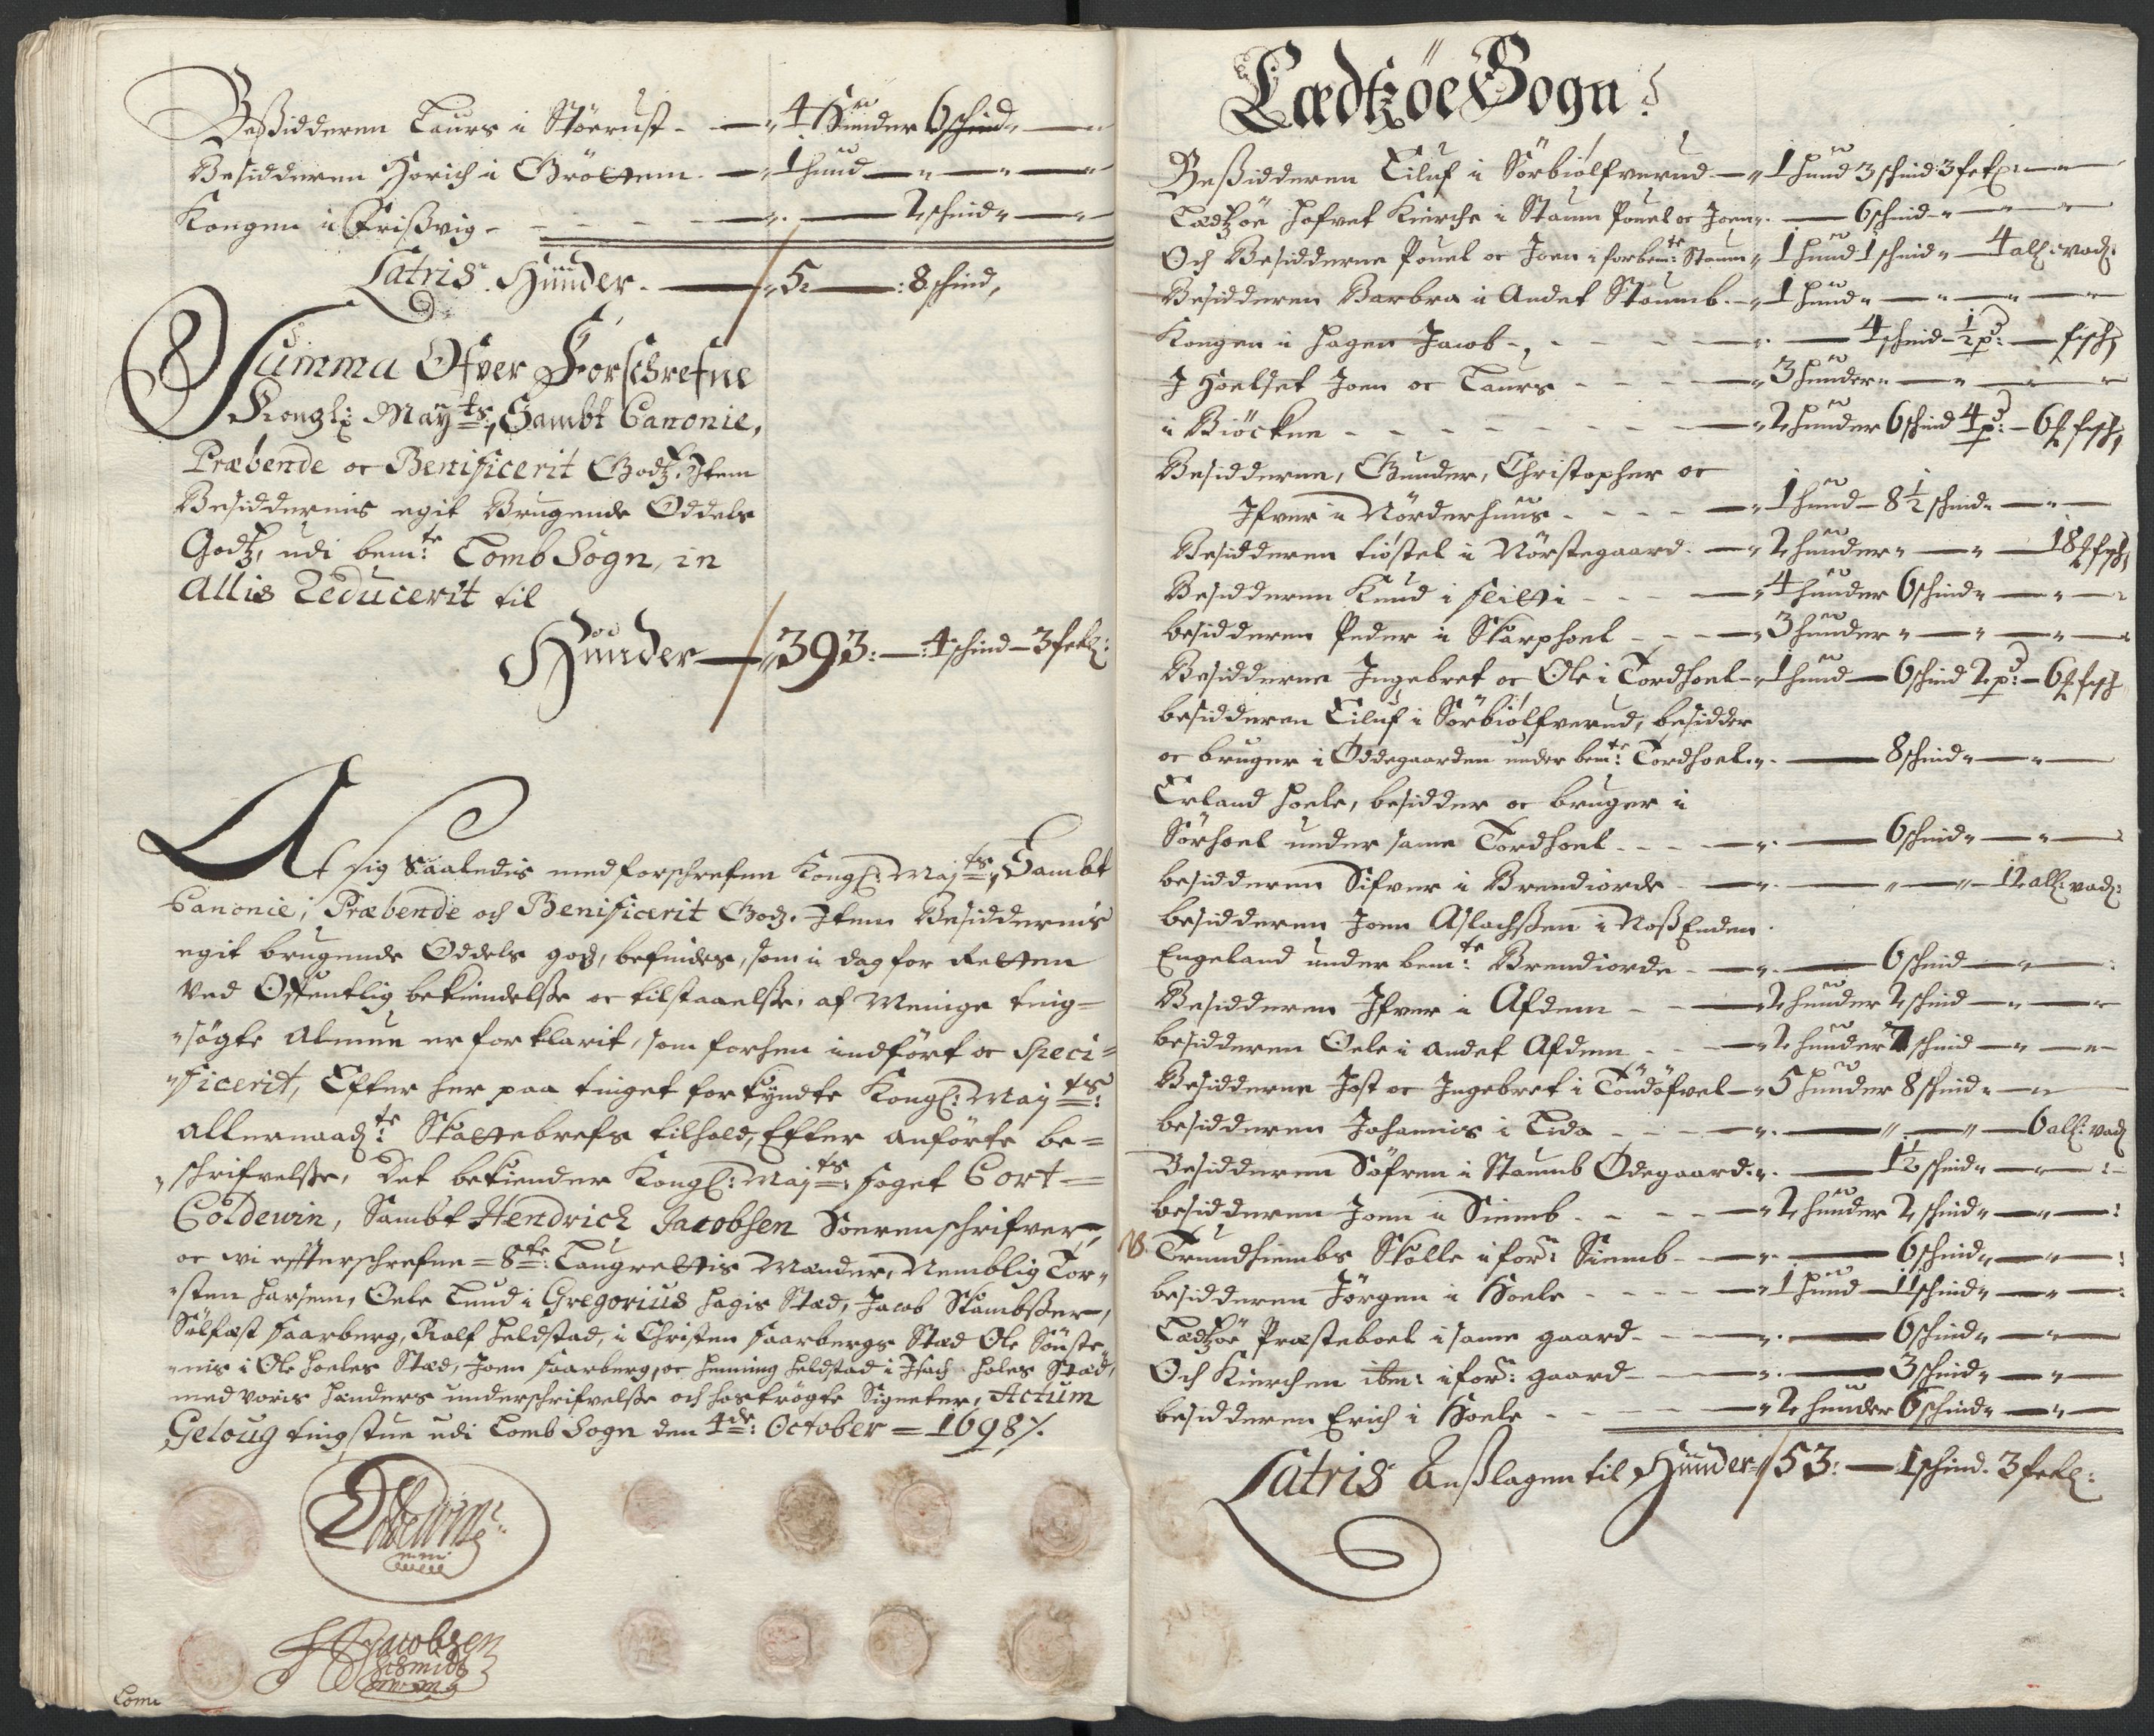 Beßidderen Laurs i Stöerust - 4 Hunder 6 schind
Besidderen Horich i Gröttem - 1 hund
Kongen i Frißvig - 2 schind
Latris Hunder - 5 - 8 schind,
Summa Ofver Forschrefne
Kongl: Mayts, Sambt Canonie,
Præbende oc Benificerit Godtz, Item
Besiddernis egit Brugende Oddels
Godtz, udi bemte: Lomb Sogn, in
Allis Reducerit til
Hunder - 393: - 4 schind - 3 fetl:
At sig Saaledis med forschrefne Kongl: Majts, Sambt
Canonie, Præbende och Benificerit Godz. Item Besiddernis
egit brugende Oddels godz, befindes, som i dag for Retten
Ved Offentlig bekiendelße oc tilstaaelße, af Menige ting-
søgte Almue er forklarit, som forhen indført oc Speci-
ficerit, Efter her paa tinget forkyndte Kongl: Mayts:
allernaadte: Skattebrefs tilhold, Efter anförte be-
schrifvelße, Det bekiender Kongl: Majts: foget Cort
Coldewin, Sambt Hendrich Jacobsen Sorenschrifver,
oc wi effterschrefne = 8te: Laugrettis Mænder, Nemblig Tor-
sten Harsem, Oele Lund i Gregorius Hagis Stæd, Jacob Skambßer,
Sølfast Aaarberg, Rolf Heldstad, i Christen Aaarbergs Stæd Ole Sønste-
nis i Ole Hoeles Stæd, Joen Aaarberg, oc Henning Heldstad i Isach Holes Stæd,
med voris Hænders underschrifvelße och hoströgte Signeter, Actum
Geloug tingstue udi Lomb Sogn den 4de: October = 1698 /.
Coldewin
mm
HJacobsen
Schmidt
Lome
Lædtzöe Sogn
Beßidderen Eiluf i Sörbiolfverud - 1 hund 3 schind 3 fetl:
Lædtzöe Hofvet Kierche i Staum Pouel oc Joen - 6 schind
Och Besidderne Pouel oc Joen i forbemte: Staum - 1 hund 1 schind - 4 all: vadl:
Besidderen Barbra i Andet Stoumb - 1 hund
Kongen i Hagen Jacob - 4 schind - ½ p: - fisch,
I Hoelset Joen oc Laurs - 3 hunder
i Biöckne - 2 hunder 6 schind 4 p: - 6 ₰ fisch,
Besidderne, Gunder, Christopher oc
Ifver i Nörderhuus - 1 hund - 8½ schind
Besidderen Kiöstel i Nörstegaard - 2 hunder - 18 ₰ fisch,
Besidderen Knud i Flitti - 4 hunder 6 schind
besidderen Peder i Skarphoel - 3 hunder
Besidderne Ingebret oc Ole i Tordhoel - 1 hund - 6 schind 2 p: - 6 ₰ fisch
besidderen Eiluf i Sörbiolfverud, besidder
oc bruger i Oddegaarden under bemte: Tordhoel - 8 schind
Erland Hoele, besidder oc bruger i
Sörhoel under same Tordhoel - 6 schind
besidderen Sifver i Brendiorde - 12 all: vadl:
besidderen Joen Aslachßen i Noß Enden
Engeland under bemte: Brendiorde - 6 schind
Besidderen Ifver i Afdem - 2 hunder 2 schind
besidderen Oele i andet Afdem - 2 hunder 7 schind
Besidderne Jost oc Ingebret i Töndöfvel - 5 hunder 8 schind
besidderen Johannis i Lida - 6 all: vadl
Besidderen Söfren i Staumb Ødegaard - 1½ schind
besidderen Joen i Siemb - 2 hunder 2 schind
NB. Trundhiembs Skolle i for: Siemb - 6 schind
besidderen Jörgen i Hoele - 1 hund - 11 schind
Lædtzöe Præsteboel i same gaard - 6 schind
Och Kierchen ibm: i for: gaard - 3 schind
besidderen Erich i Hoele - 2 hunder 6 schind
Latris Anßlagen til Hunder 53: - 1 schind. 3 fetl: